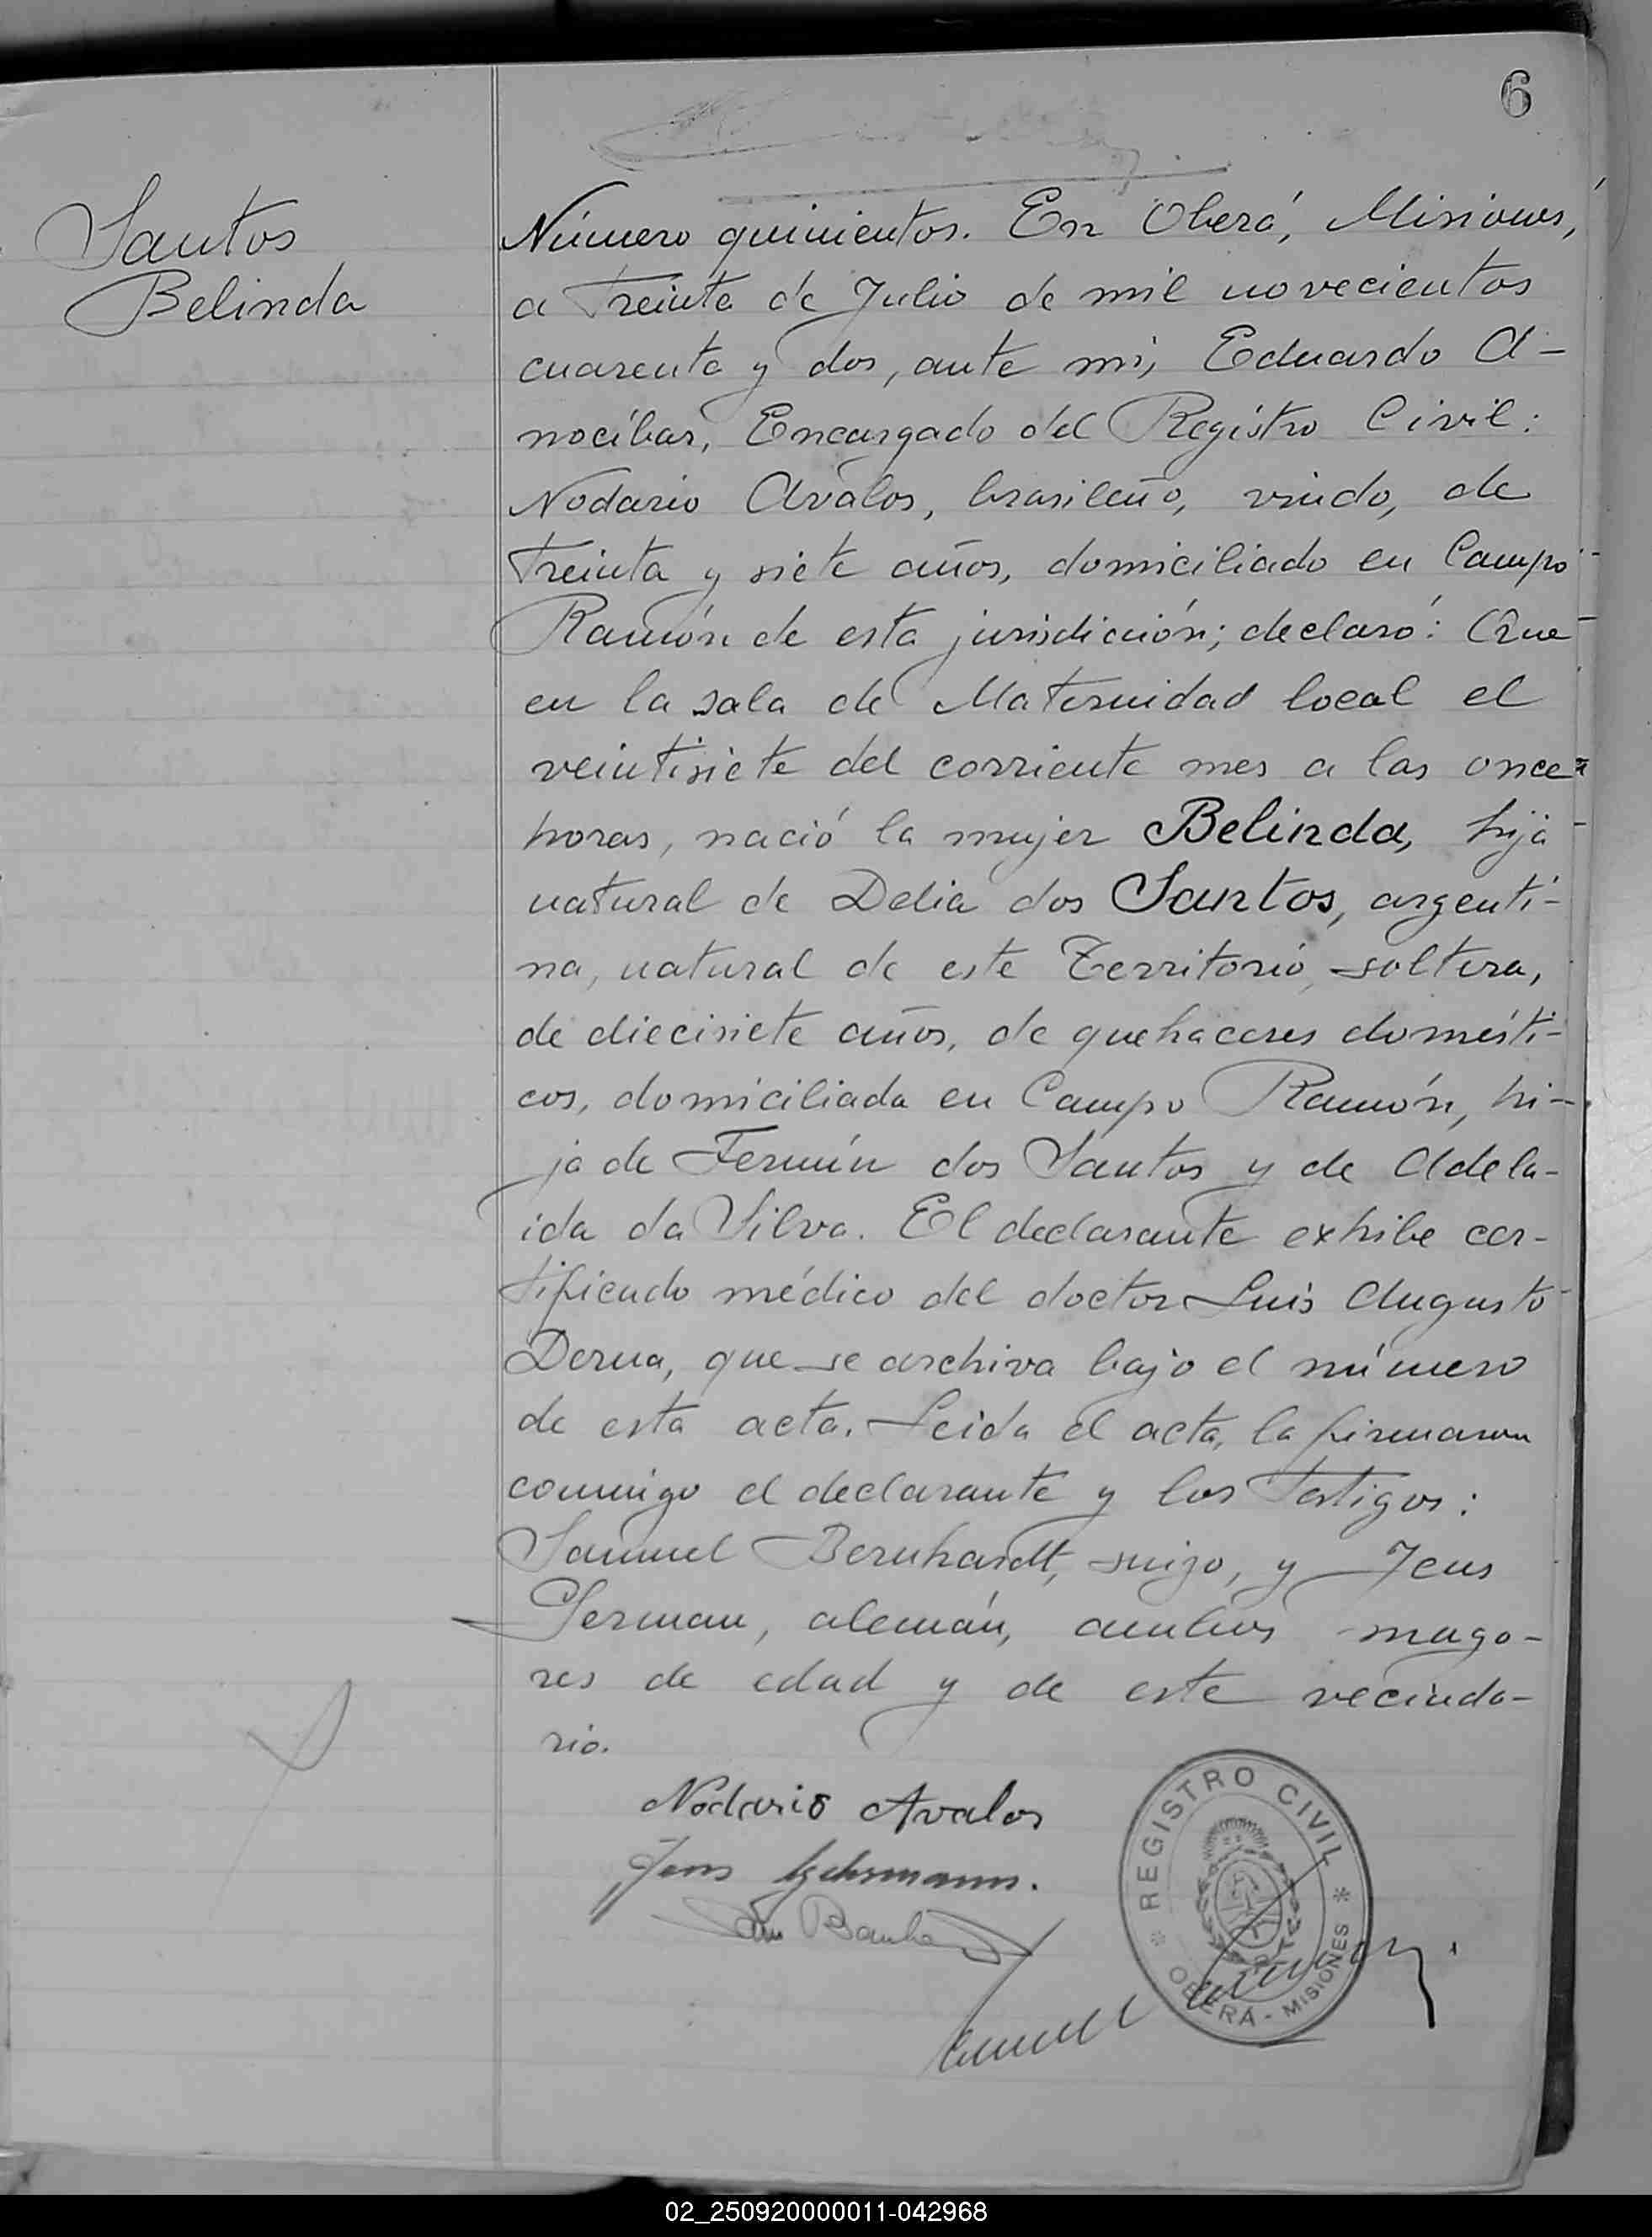 6
Santos
Belinda
Número quinientos. En Oberá, Misiones,
a treinta de Julio de mil novecientos
cuarenta y dos, ante mi, Eduardo A-
nocíbar, Encargado del Registro Civil:
Nodario Avalos, brasileño, viudo, de
treinta y siete años, domiciliado en Campo
Ramón de esta jurisdición; declaró: Que
en la sala de Maternidad local el
veintisiete del corriente mes a las once
horas, nació la mujer Belinda, hija
natural de Delia dos Santos, argenti-
na, natural de este Territorio, soltera,
de diecisiete años, de quehaceres domésti-
cos, domiciliada en Campo Ramón, hi-
ja de Fermín dos Santos y de Adela-
ida da Silva. El declarante exhibe cer-
tificado médico del doctor Luis Augusto
Derna, que se archiva bajo el número
de esta acta. Leida el acta, la firmaron
conmigo el declarante y los testigos:
Samuel Bernhardt, suizo, y Jens
German, alemán, ambos mayo-
res de edad y de este vecinda-
rio.
Nodario Avalos
Jens
REGISTRO CIVIL
OBERÁ - MISIONES
02_250920000011-042968